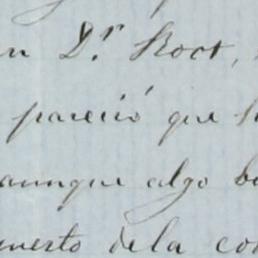 Dr. Root,
pareció que
aunque algo
de la